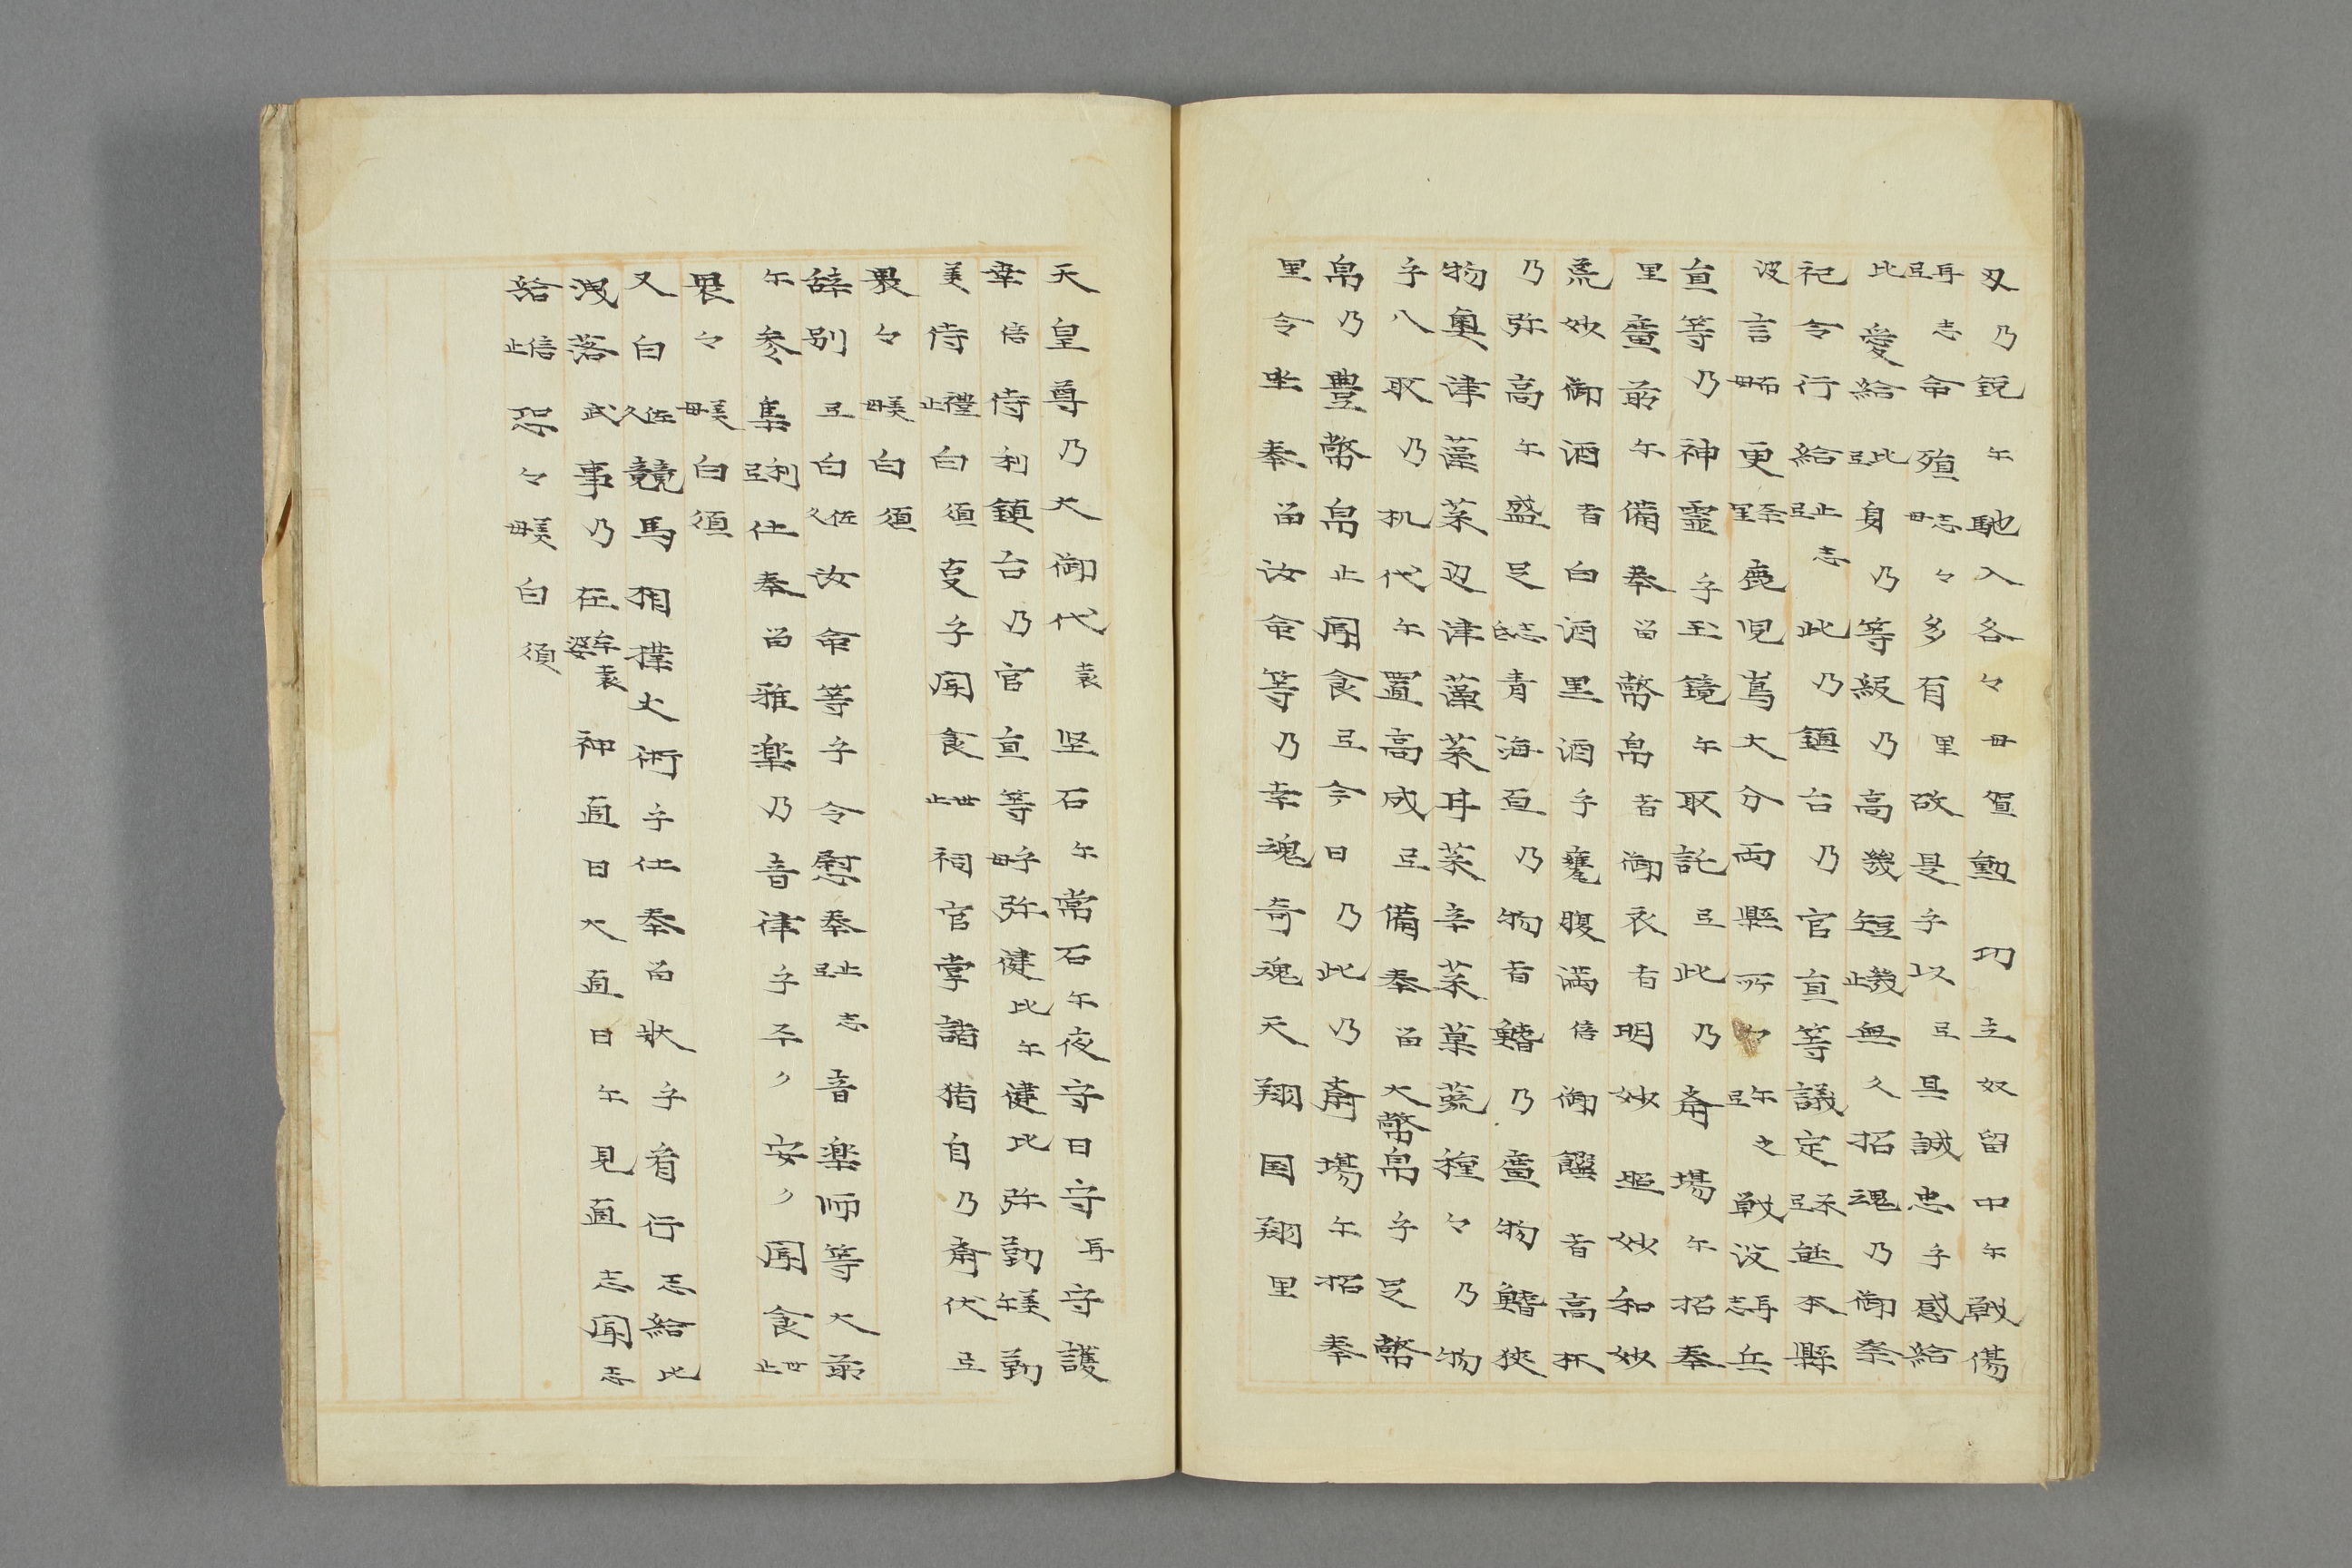 刄乃鋭尓馳入各々毋賀勲功立奴留中尓戦傷
耳志弖命殞志毋志々多有里故是乎以弖其誠忠乎感給
比愛給比弖身乃等級乃高幾短幾止無久招魂乃御祭
祀令行給止志弖此乃鎮台乃官亘等議定弖熊本縣
波言毋更奈里鹿児嶌大分両縣所々弥弖之戦没耳志兵
亘等乃神霊乎玉鏡尓取託弖此乃斎場尓招奉
里齎前尓備奉留幣帛者御衣者明妙照妙和妙
荒妙御酒者白酒里酒乎甕腹満倍御饌者高杯
乃弥高尓盛足志青海亘乃物者鰭乃廣物鰭狭
物奥津藻菜辺津藻菜甘菜辛菜菓蓏種々乃物
乎八取乃机代尓置高成弖備奉留大幣帛乎足幣
帛乃豊幣帛止聞食弖今日乃此乃斎場尓招奉
里令坐奉留汝命等乃幸魂奇魂天翔国翔里
天皇尊乃大御代袁堅石尓常石尓夜守日守耳守護
幸倍侍利鎮台乃官亘等乎毋弥健比尓健比弥勤美尓勤
美侍禮止白須戻乎聞食世止祠官掌諸猪自乃斎伏弖
畏々美毋白須
辞別弖白佐久汝命等乎令慰奉止志弖音楽師等大前
尓参集利弖仕奉留雅楽乃音律乎平ク安ク聞食世止
畏々美毋白須
又白佐久競馬相撲火術乎仕奉留状乎肴行志給比
洩落武事乃在牟袁婆神直日大直日尓見直志聞志
給倍止恐々美毋白須